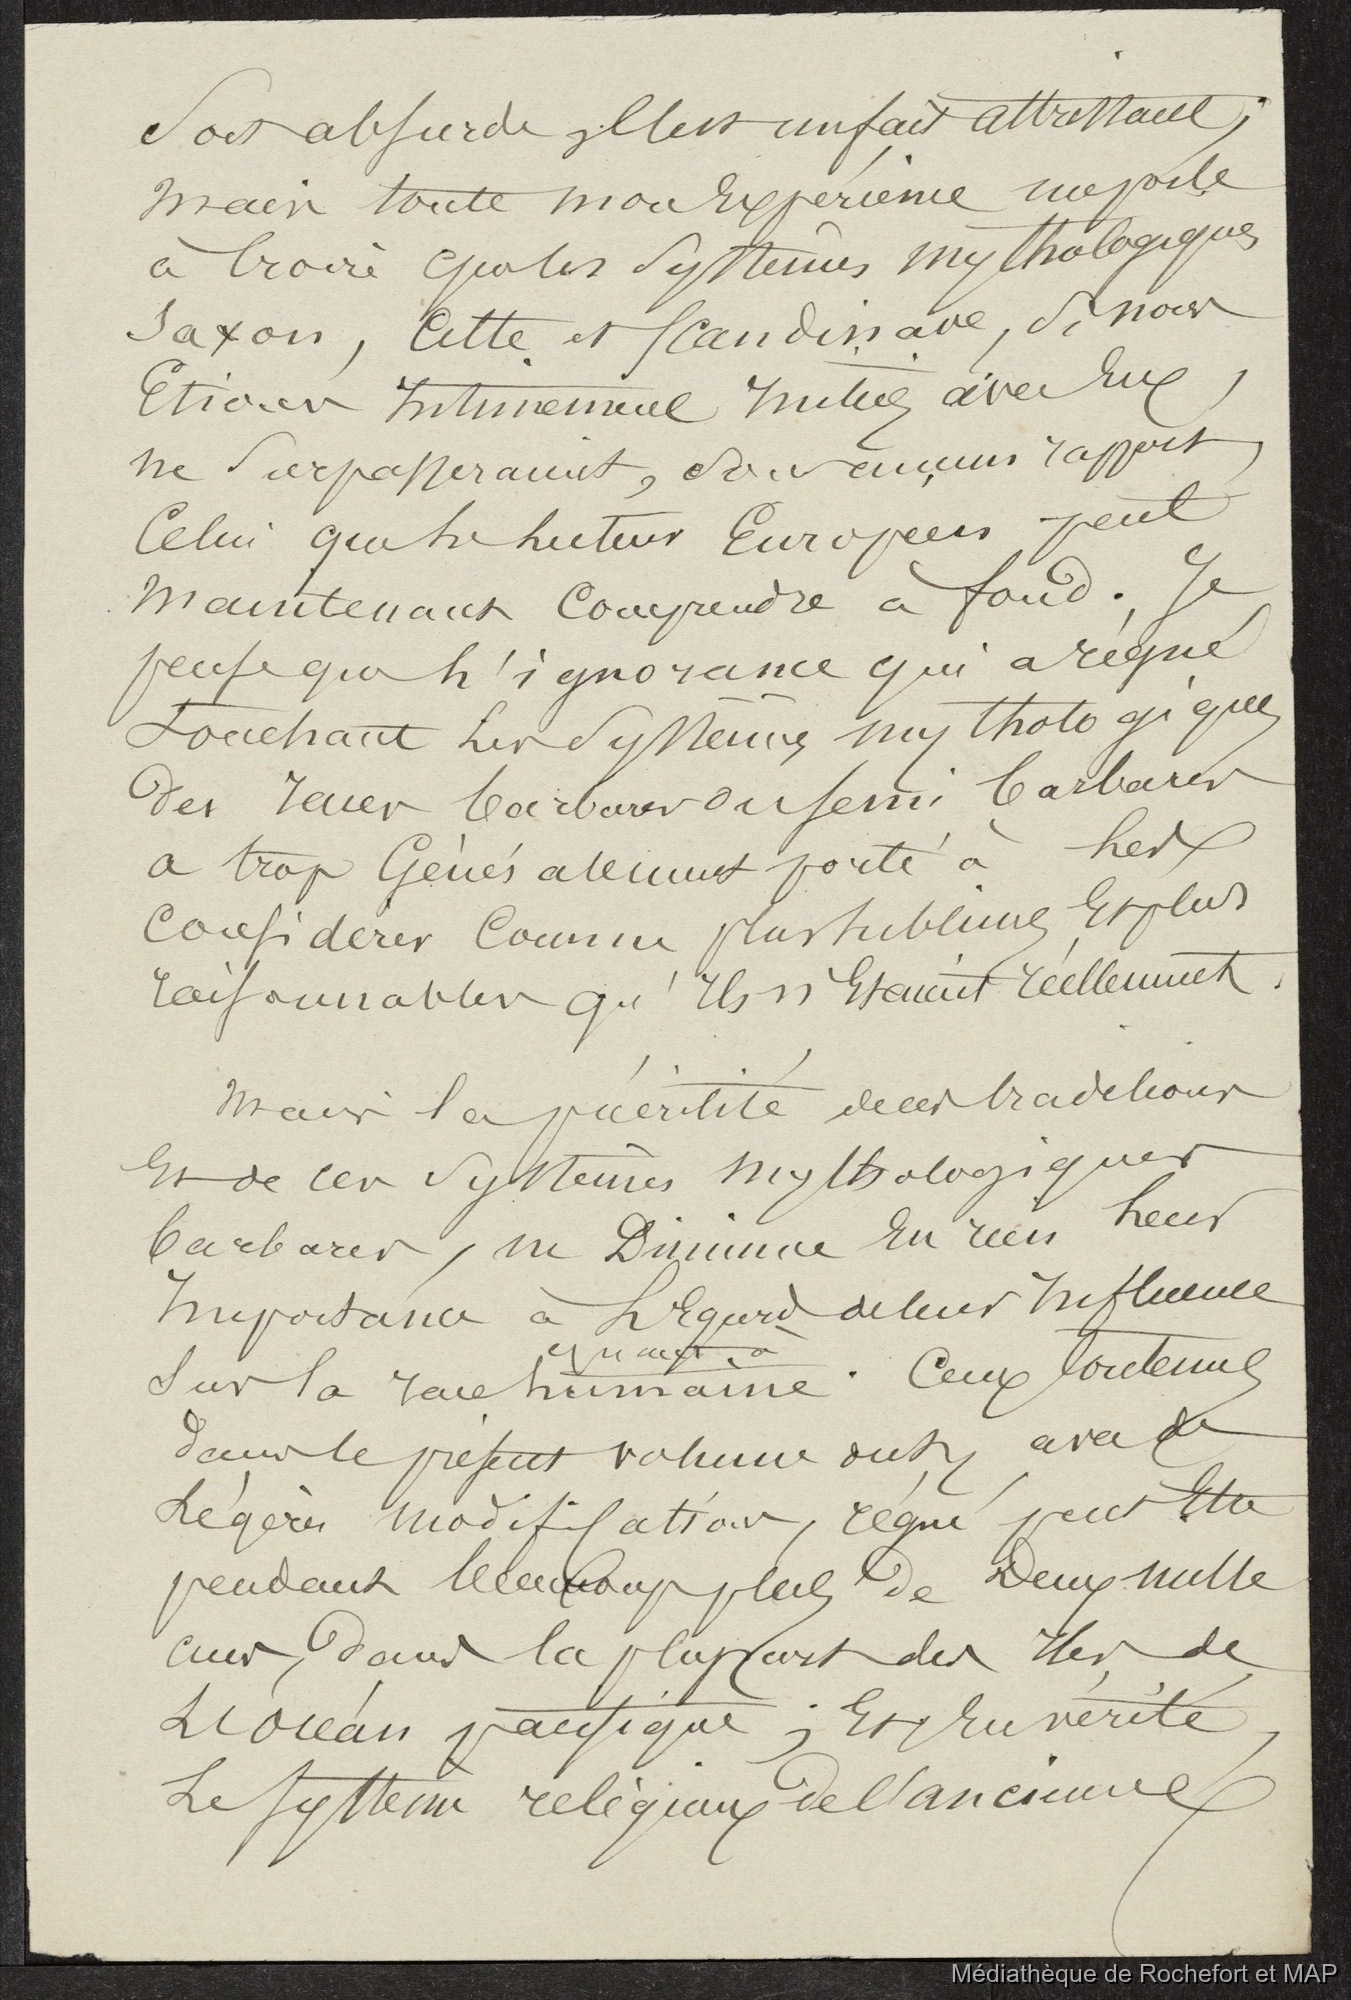 Soit absurde, C'est un fait attristant;
Mais toute mon Expérience me porte
à Croire que les Systêmes mythologiques
Saxon, Celte et Scandinave, Si nous
Etions Intimement Initiés avec Eux,
ne Surpasseraient, Sous aucuns rapport,
Celui que le lecteur Européen peut
Maintenant Comprendre à fond. Je
pense que l'ignorance qui a régné
Touchant Les Systêmes mythologiques
Des races barbares ou semi barbares
a trop Généralement porté à les
Considérer Comme plus Sublimes Et plus
raisonnables qu'Ils n'Etaient réellement.
Mais la puérilité de ces traditions
Et de ces Systêmes Mythologiques
barbares, ne Diminue En rien leur
Importance à L'Egard de leur Influence
Sur la race humaine. Ceux Contenus
dans le présent volume ont, avec de
Légères Modifications, régné peut Etre
pendant beaucoup plus de Deux mille
ans, Dans la plupart des Iles de
L'Océan pacifique; Et, En vérité,
Le Systême religieux De l'ancienne
Médiathèque de Rochefort et MAP